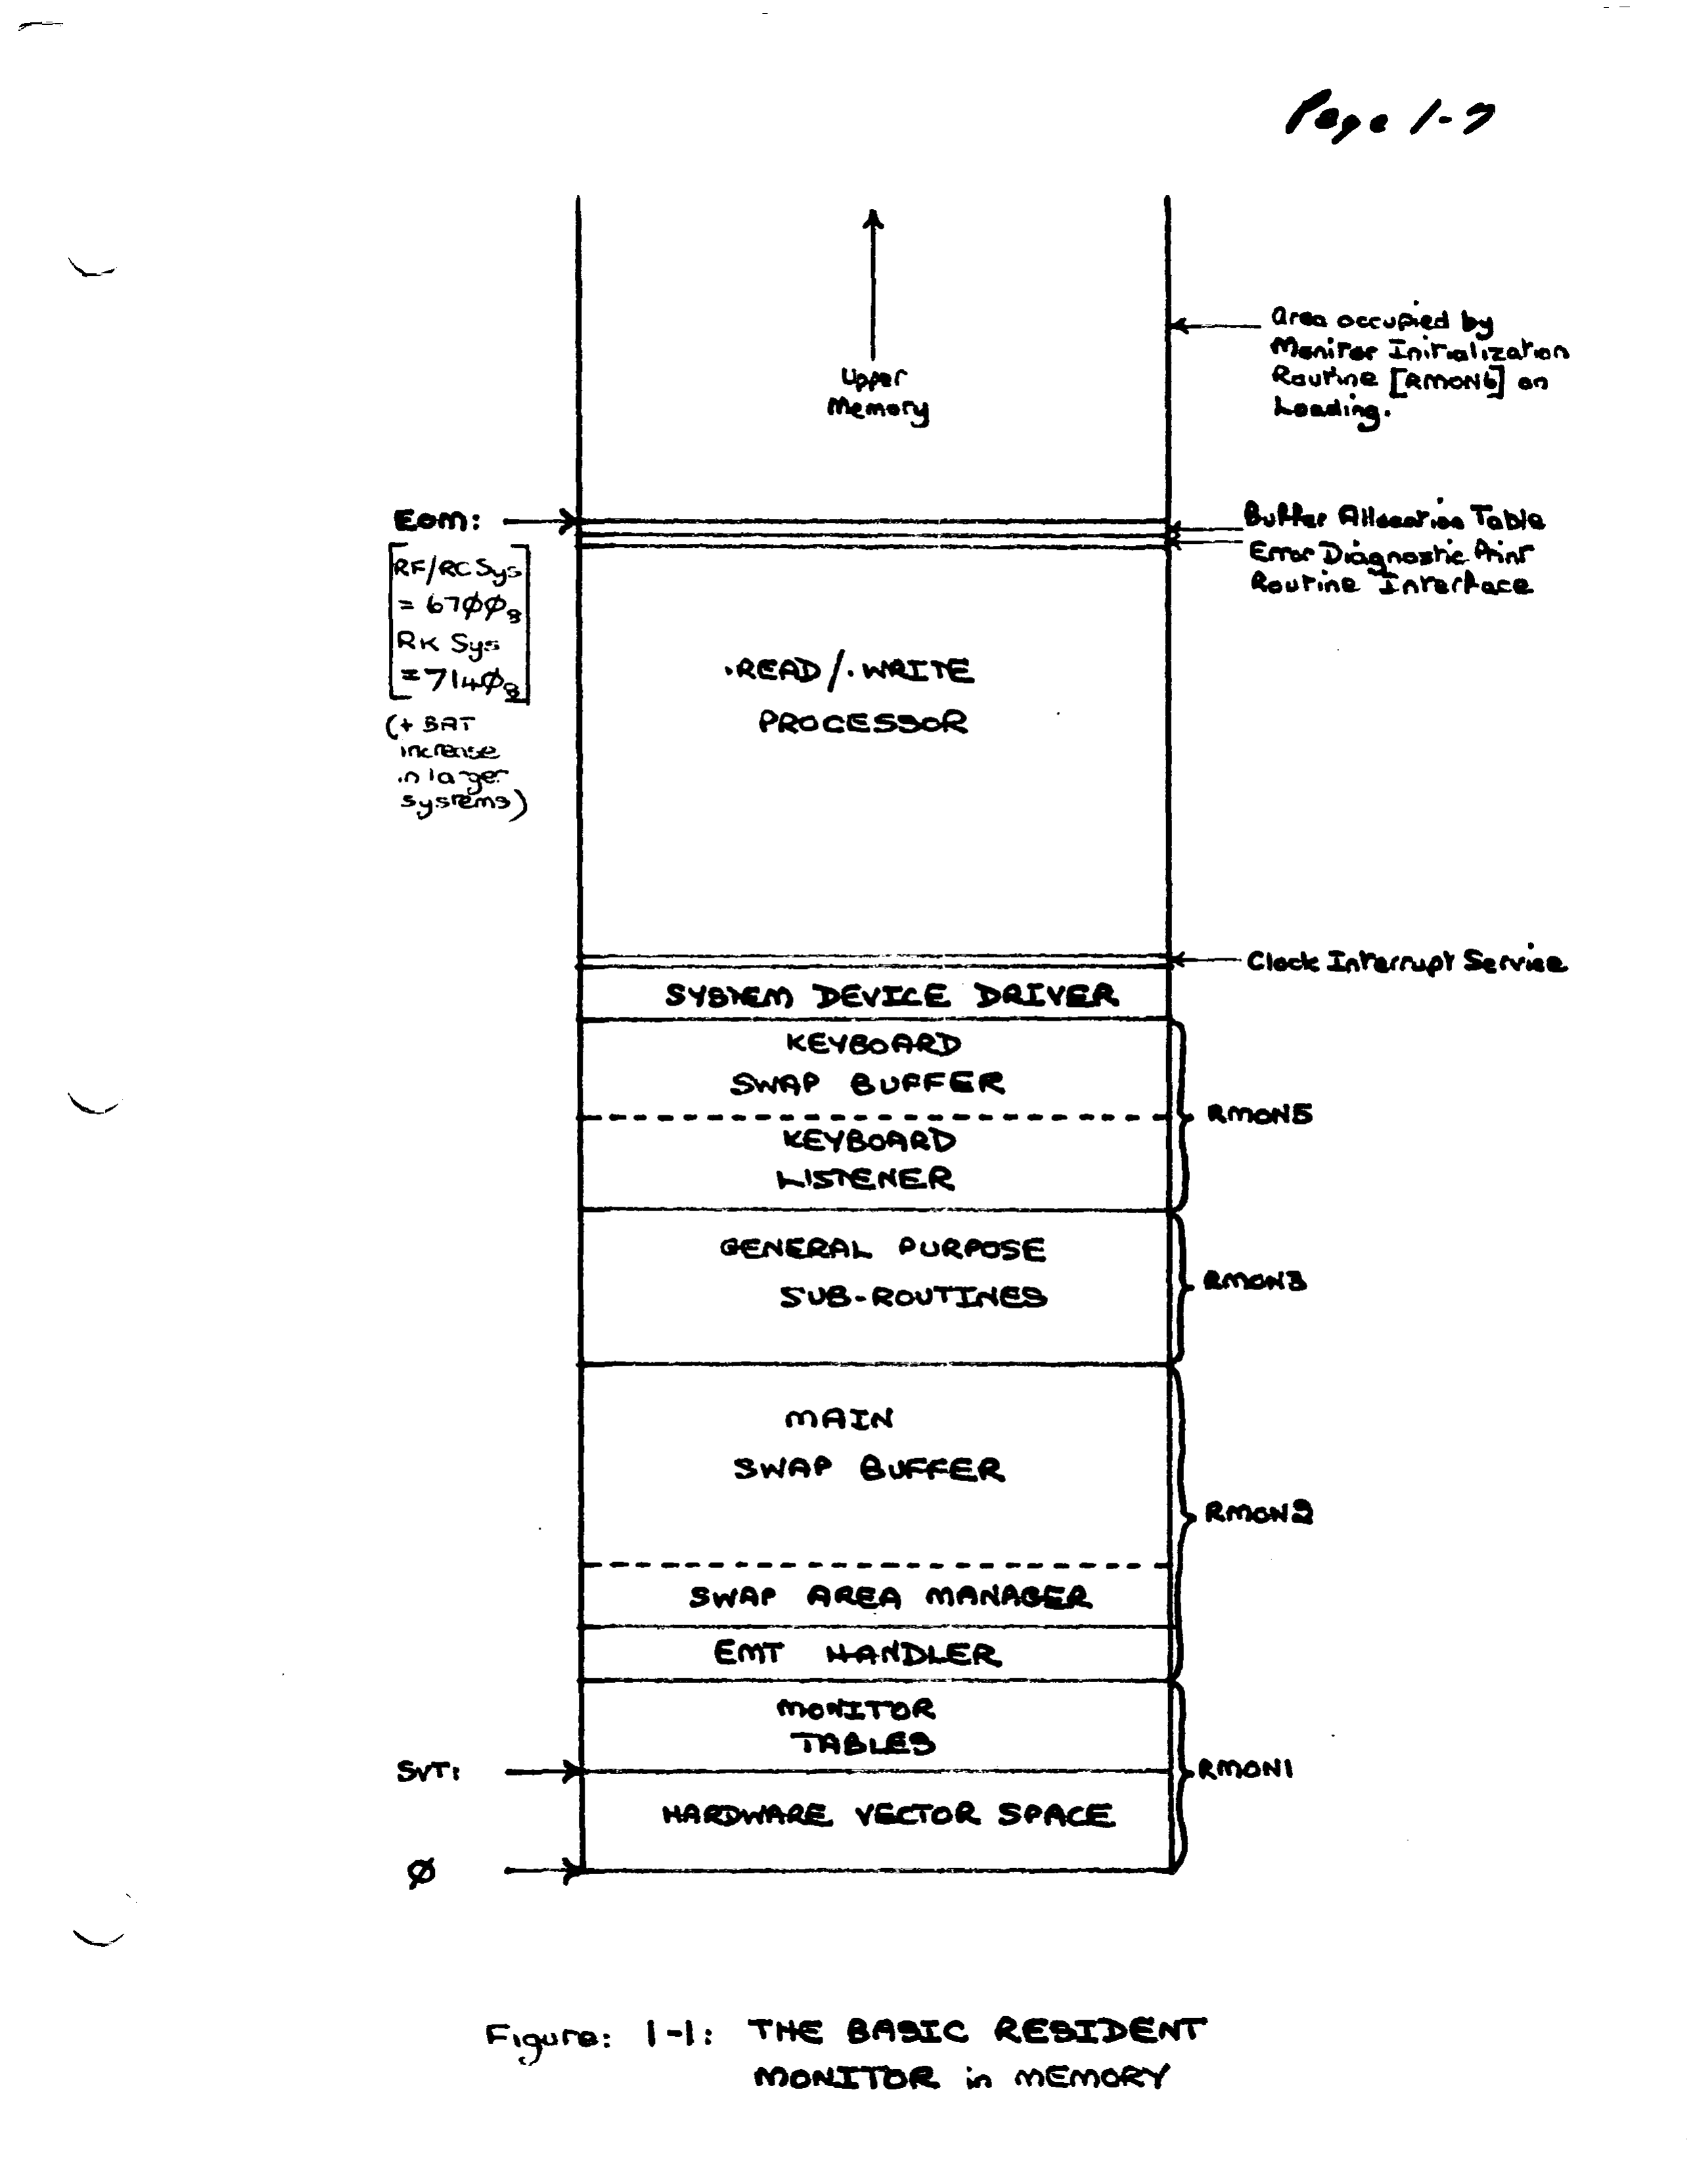 Page 1-7
Upper
Memory
Area occupied by
Monitor Initialization
Routine [RMON6] on
Loading.
EOM:
[RF/RC Sys
= 67ØØ₈
RK Sys
= 714Ø₈]
(+ BAT
increase
in larger
systems)
Buffer Allocation Table
Error Diagnostic Print
Routine Interface
.READ/.WRITE
PROCESSOR
Clock Interrupt Service
SYSTEM DEVICE DRIVER
KEYBOARD
SWAP BUFFER
RMON5
KEYBOARD
LISTENER
GENERAL PURPOSE
SUB-ROUTINES
RMON3
MAIN
SWAP BUFFER
RMON2
SWAP AREA MANAGER
EMT HANDLER
MONITOR
TABLES
SVT:
RMON1
HARDWARE VECTOR SPACE
Ø
Figure: 1-1: THE BASIC RESIDENT
MONITOR in MEMORY